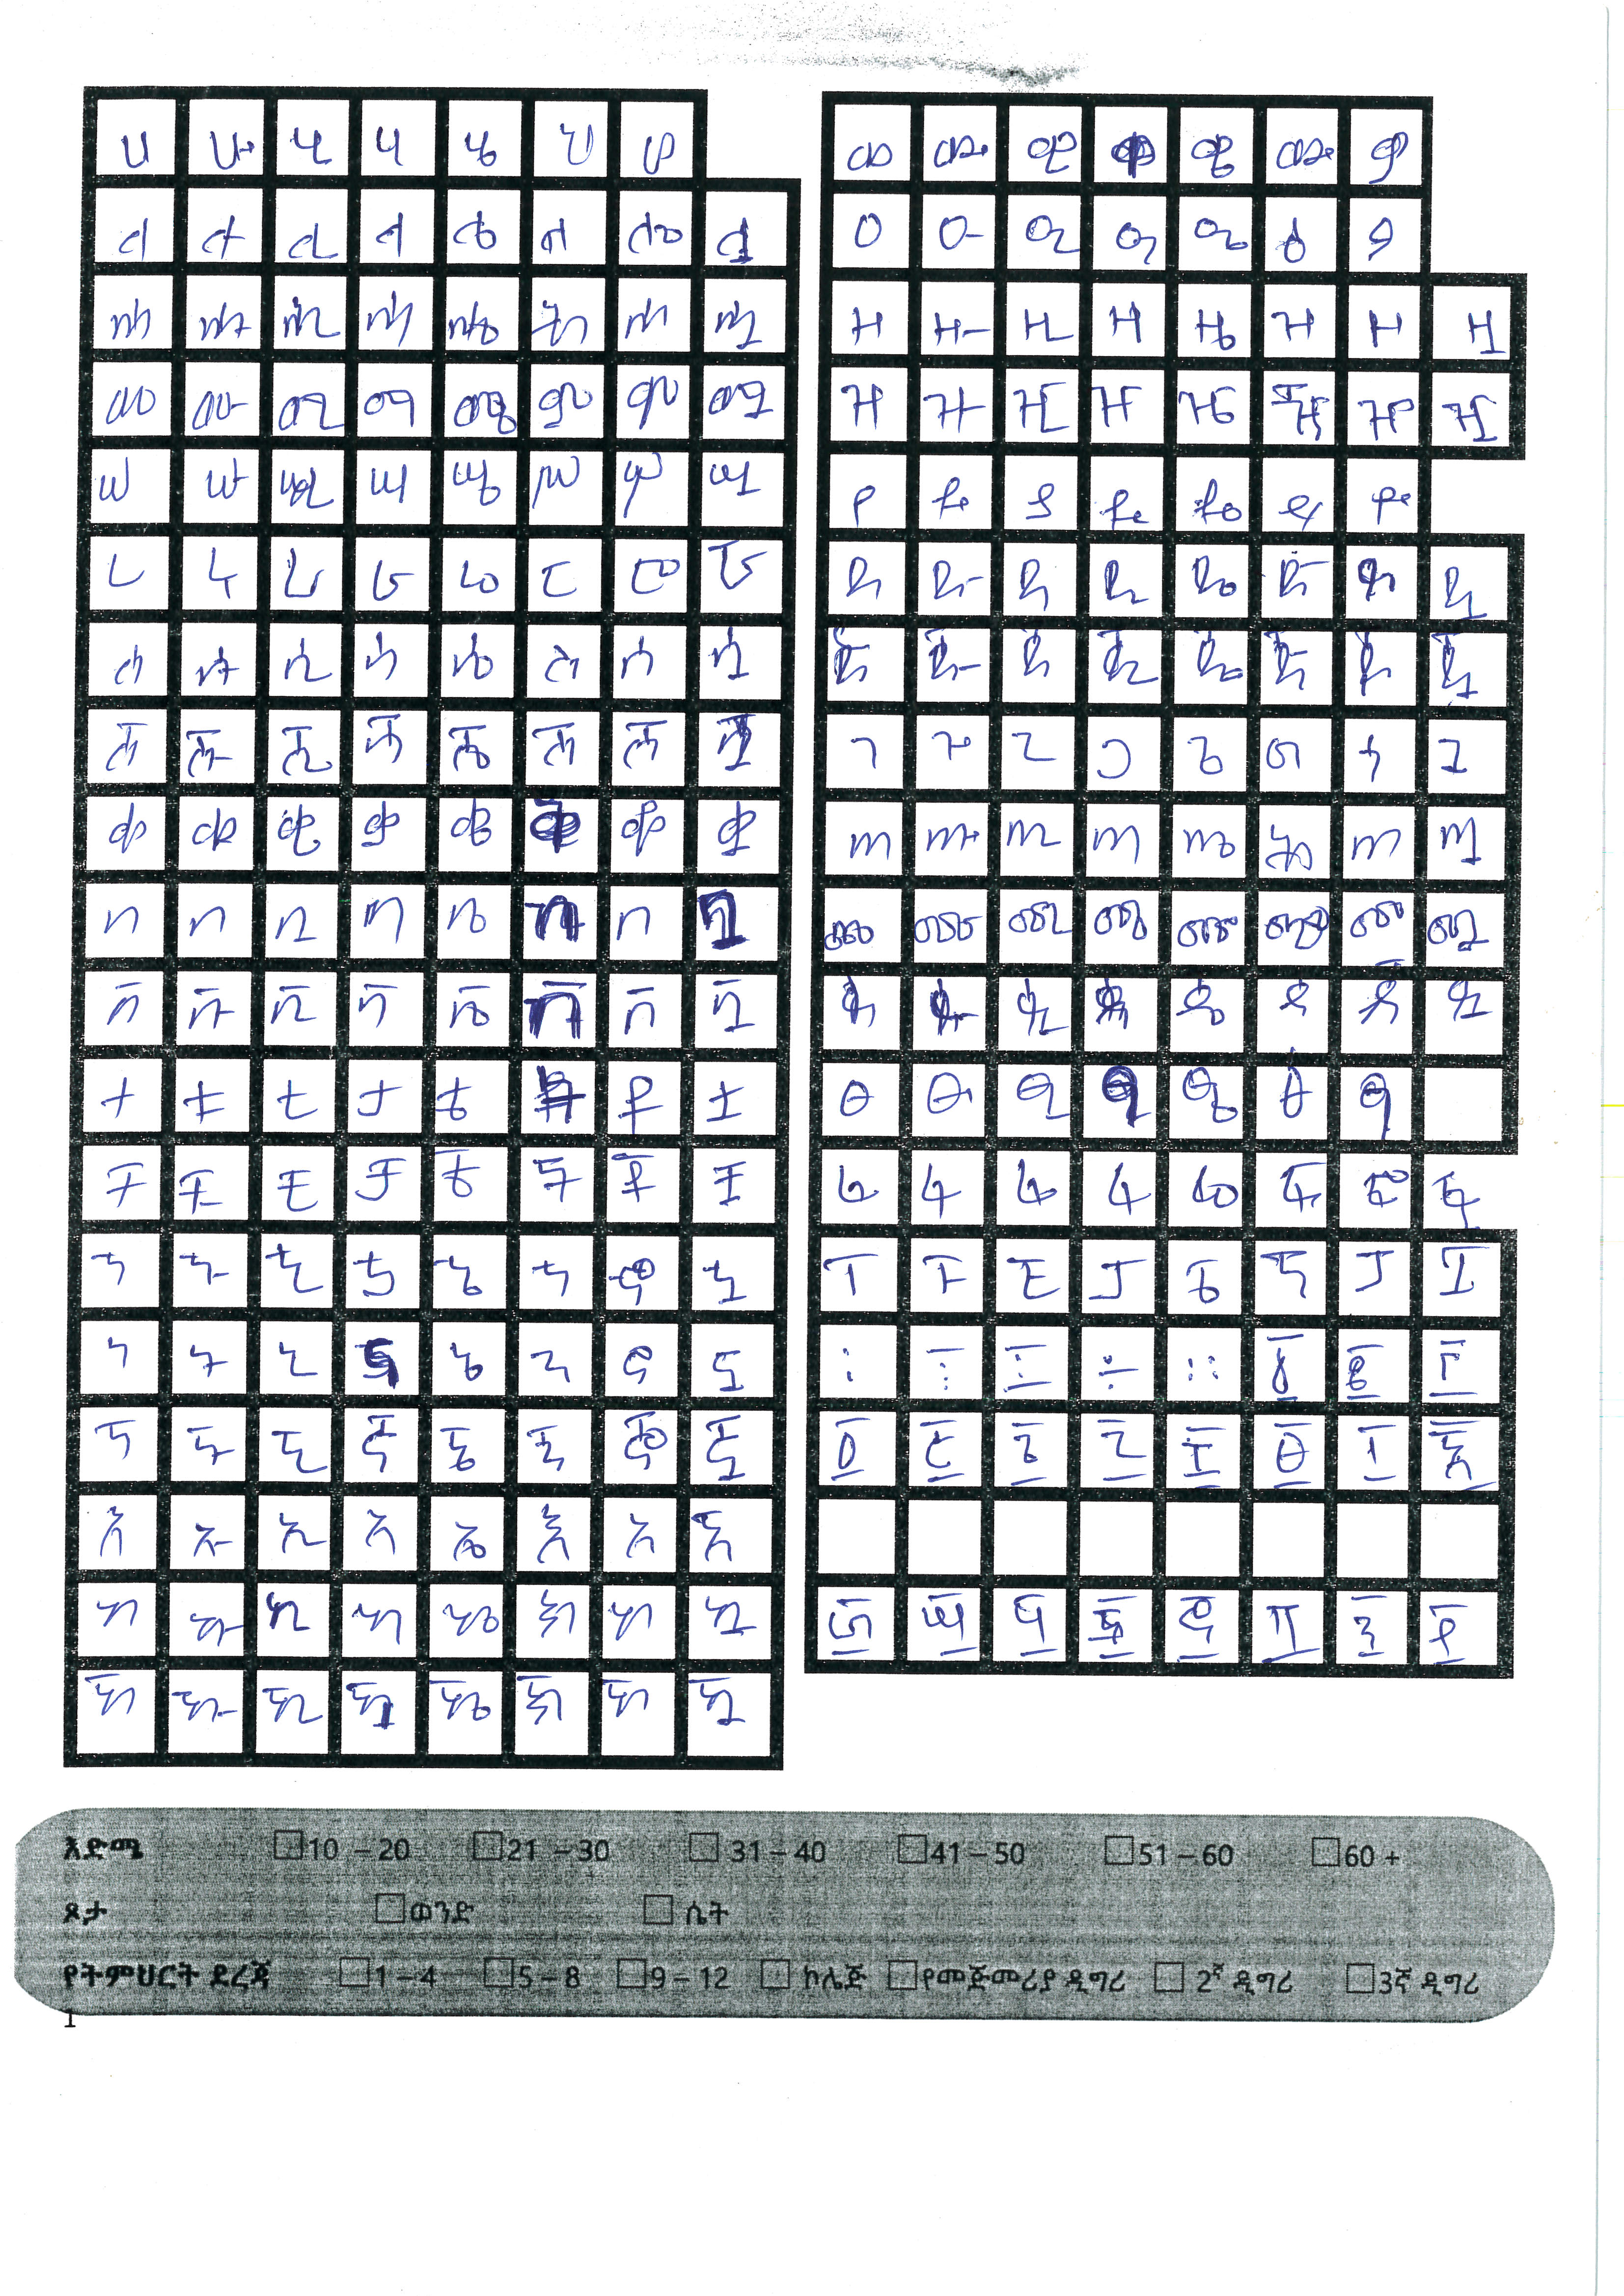 ሀ ሁ ሂ ሃ ሄ ህ ሆ
ለ ሉ ሊ ላ ሌ ል ሎ ሏ
ሐ ሑ ሒ ሓ ሔ ሕ ሖ ሗ
መ ሙ ሚ ማ ሜ ም ሞ ሟ
ሠ ሡ ሢ ሣ ሤ ሥ ሦ ሧ
ረ ሩ ሪ ራ ሬ ር ሮ ሯ
ሰ ሱ ሲ ሳ ሴ ስ ሶ ሷ
ሸ ሹ ሺ ሻ ሼ ሽ ሾ ሿ
ቀ ቁ ቂ ቃ ቄ ቅ ቆ ቋ
በ ቡ ቢ ባ ቤ ብ ቦ ቧ
ቨ ቩ ቪ ቫ ቬ ቭ ቮ ቯ
ተ ቱ ቲ ታ ቴ ት ቶ ቷ
ቸ ቹ ቺ ቻ ቼ ች ቾ ቿ
ኀ ኁ ኂ ኃ ኄ ኅ ኆ ኋ
ነ ኑ ኒ ና ኔ ን ኖ ኗ
ኘ ኙ ኚ ኛ ኜ ኝ ኞ ኟ
አ ኡ ኢ ኣ ኤ እ ኦ ኧ
ከ ኩ ኪ ካ ኬ ክ ኮ ኳ
ኸ ኹ ኺ ኻ ኼ ኽ ኾ ዃ
ወ ዉ ዊ ዋ ዌ ው ዎ
ዐ ዑ ዒ ዓ ዔ ዕ ዖ
ዘ ዙ ዚ ዛ ዜ ዝ ዞ ዟ
ዠ ዡ ዢ ዣ ዤ ዥ ዦ ዧ
የ ዩ ዪ ያ ዬ ይ ዮ
ደ ዱ ዲ ዳ ዴ ድ ዶ ዷ
ጀ ጁ ጂ ጃ ጄ ጅ ጆ ጇ
ገ ጉ ጊ ጋ ጌ ግ ጎ ጓ
ጠ ጡ ጢ ጣ ጤ ጥ ጦ ጧ
ጨ ጩ ጪ ጫ ጬ ጭ ጮ ጯ
ጰ ጱ ጲ ጳ ጴ ጵ ጶ ጷ
ፀ ፁ ፂ ፃ ፄ ፅ ፆ
ፈ ፉ ፊ ፋ ፌ ፍ ፎ ፏ
ፐ ፑ ፒ ፓ ፔ ፕ ፖ ፗ
፡ ፤ ፥ ÷ ። ፩ ፪ ፫
፬ ፭ ፮ ፯ ፰ ፱ ፲
፳ ፴ ፵ ፶ ፷ ፸ ፹ ፺
እድሜ 10 – 20 21 – 30 31 – 40 41 – 50 51 – 60 60 +
ጾታ ወንድ ሴት
የትምህርት ደረጃ 1 – 4 5 – 8 9 – 12 ኮሌጅ የመጀመሪያ ዲግሪ 2ኛ ዲግሪ 3ኛ ዲግሪ
1